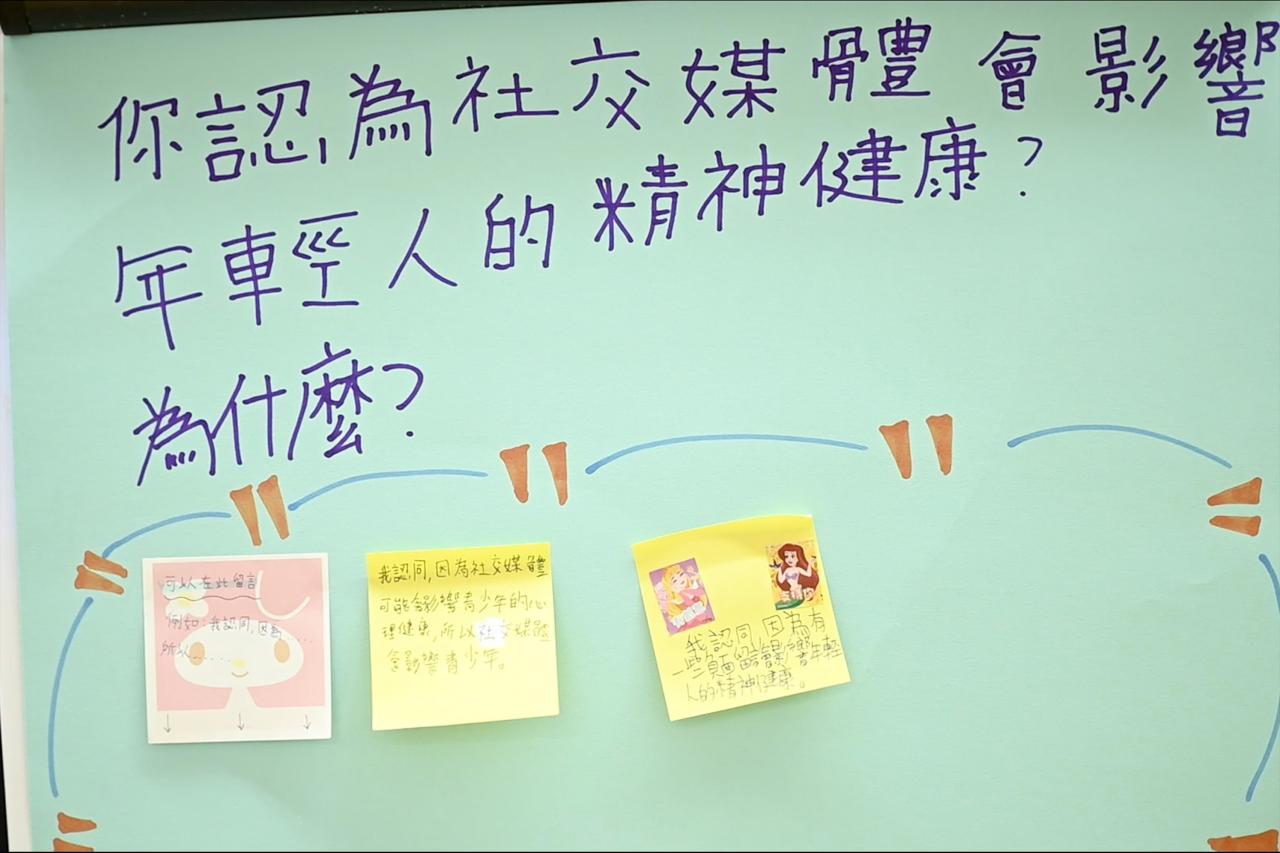 你認為社交媒體會影響
年輕人的精神健康?
為什麼?
可以在此留言
例如:我認同,因為......
所以......
我認同,因為社交媒體
可能會影響青少年的心
理健康,所以社交媒體
會影響青少年。
我認同,因為有
一些負面留言會影響年輕
人的精神健康。